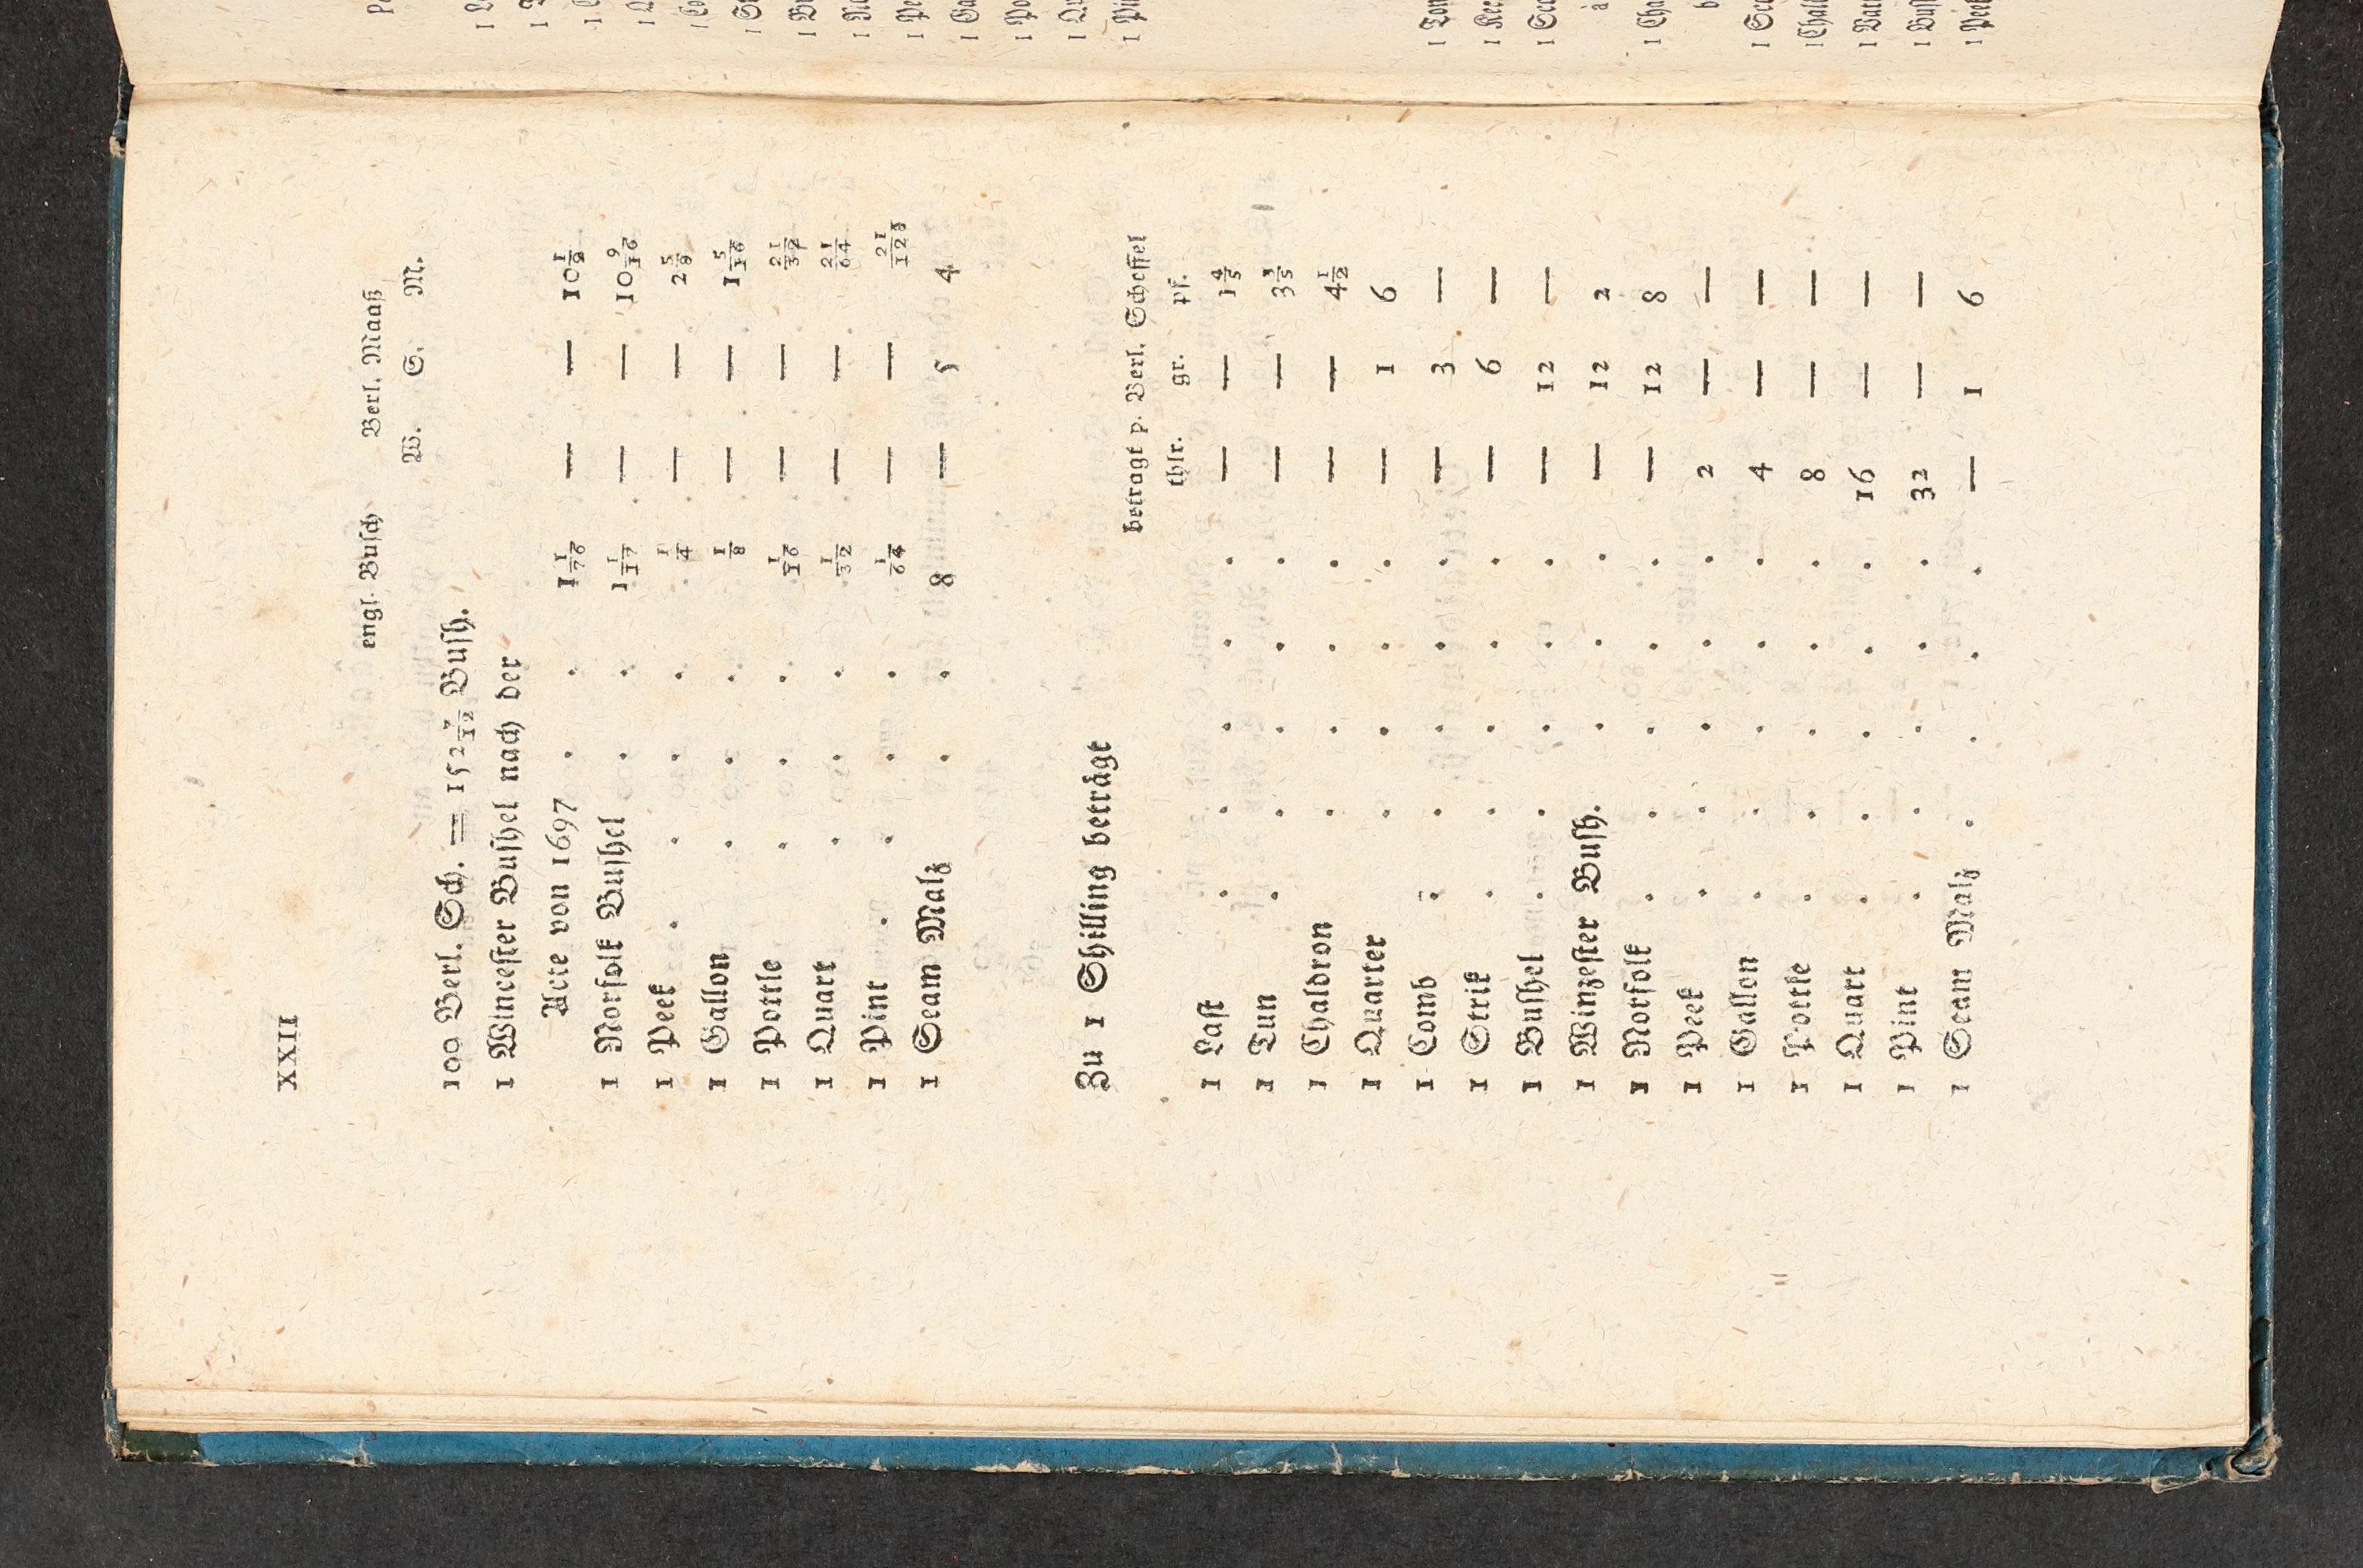 XXII
engl. Busch Berl. Maaß
W. S. M.
100 Berl. Sch. = 152 7/12 Bush.
1 Wincester Bushel nach der
Acte von 1697 . . 1 1/76 — — 10 1/9
1 Norfolk Bushel . . 1 1/17 — — 10 9/16
1 Peek . . . . 1/4 — — 2 5/8
1 Gallon . . . 1/8 — — 1 5/16
1 Pottle . . . 1/16 — — 21/32
1 Quart . . . 1/32 — — 21/64
1 Pint . . . . 1/64 — — 21/128
1 Seam Malz . . 8 — 5 4
Zu 1 Shilling beträgt
betragt p. Berl. Scheffel
thlr. gr. pf.
1 Last . . . . . — — 1 4/5
1 Tun . . . . . — — 3 3/5
1 Chaldron . . . . — — 4 1/2
1 Quarter . . . . — 1 6
1 Comb . . . . . — 3 —
1 Strik . . . . . — 6 —
1 Bushel . . . . . — 12 —
1 Winzester Bush. . . . — 12 2
1 Norfolk . . . . . — 12 8
1 Peek . . . . . 2 — —
1 Gallon . . . . . 4 — —
1 Pottle . . . . . 8 — —
1 Quart . . . . . 16 — —
1 Pint . . . . . 32 — —
1 Seam Malz . . . . — 1 6